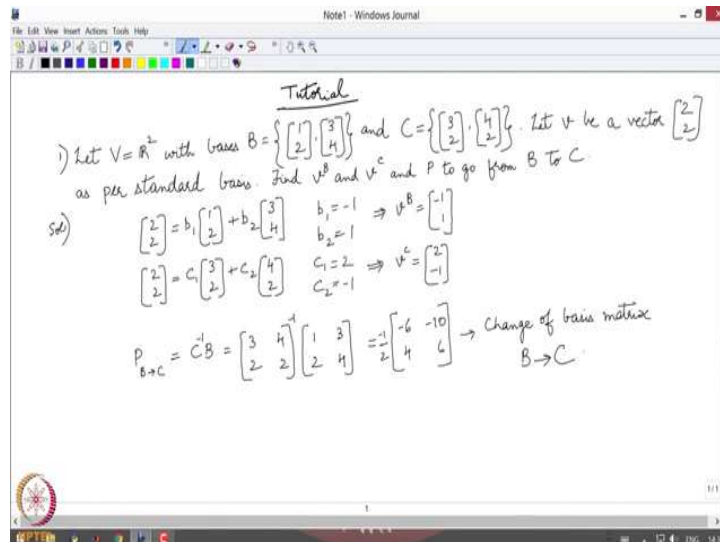 Note1 - Windows Journal
File Edit View Insert Actions Tools Help
B I
Tutorial
1) Let V = R² with bases B = {[1 2], [3 4]} and C = {[3 2], [4 2]}. Let v be a vector [2 2]
as per standard basis. Find v^B and v^C and P to go from B to C.
Sol) [2 2] = b₁[1 2] + b₂[3 4] b₁ = -1 b₂ = 1 ⇒ v^B = [-1 1]
[2 2] = c₁[3 2] + c₂[4 2] c₁ = 2 c₂ = -1 ⇒ v^C = [2 -1]
P B→C = C⁻¹B = [3 4 2 2]⁻¹ [1 3 2 4] = -1/2 [-6 -10 4 6] → Change of basis matrix
B→C.
1/1
1
NPTEL
ENG